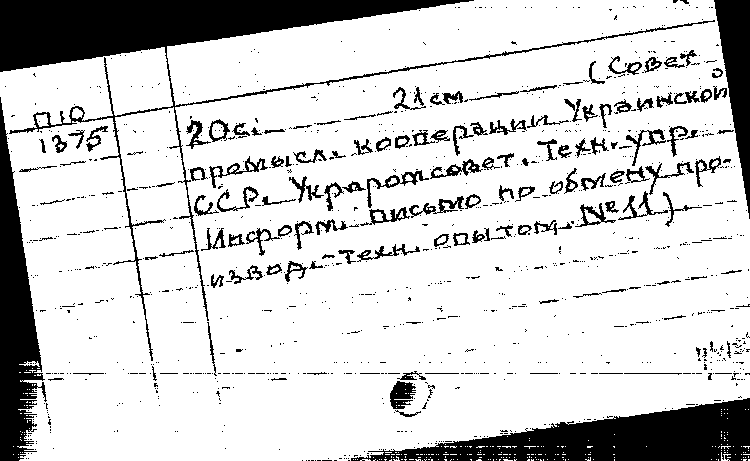 П10
1375
20с. 21см (Совет
промысл. кооперации Украинской
ССР. Укрпромсовет. Техн. упр.
Информ. письмо по обмену про-
извод.-техн. опытом. № 11).